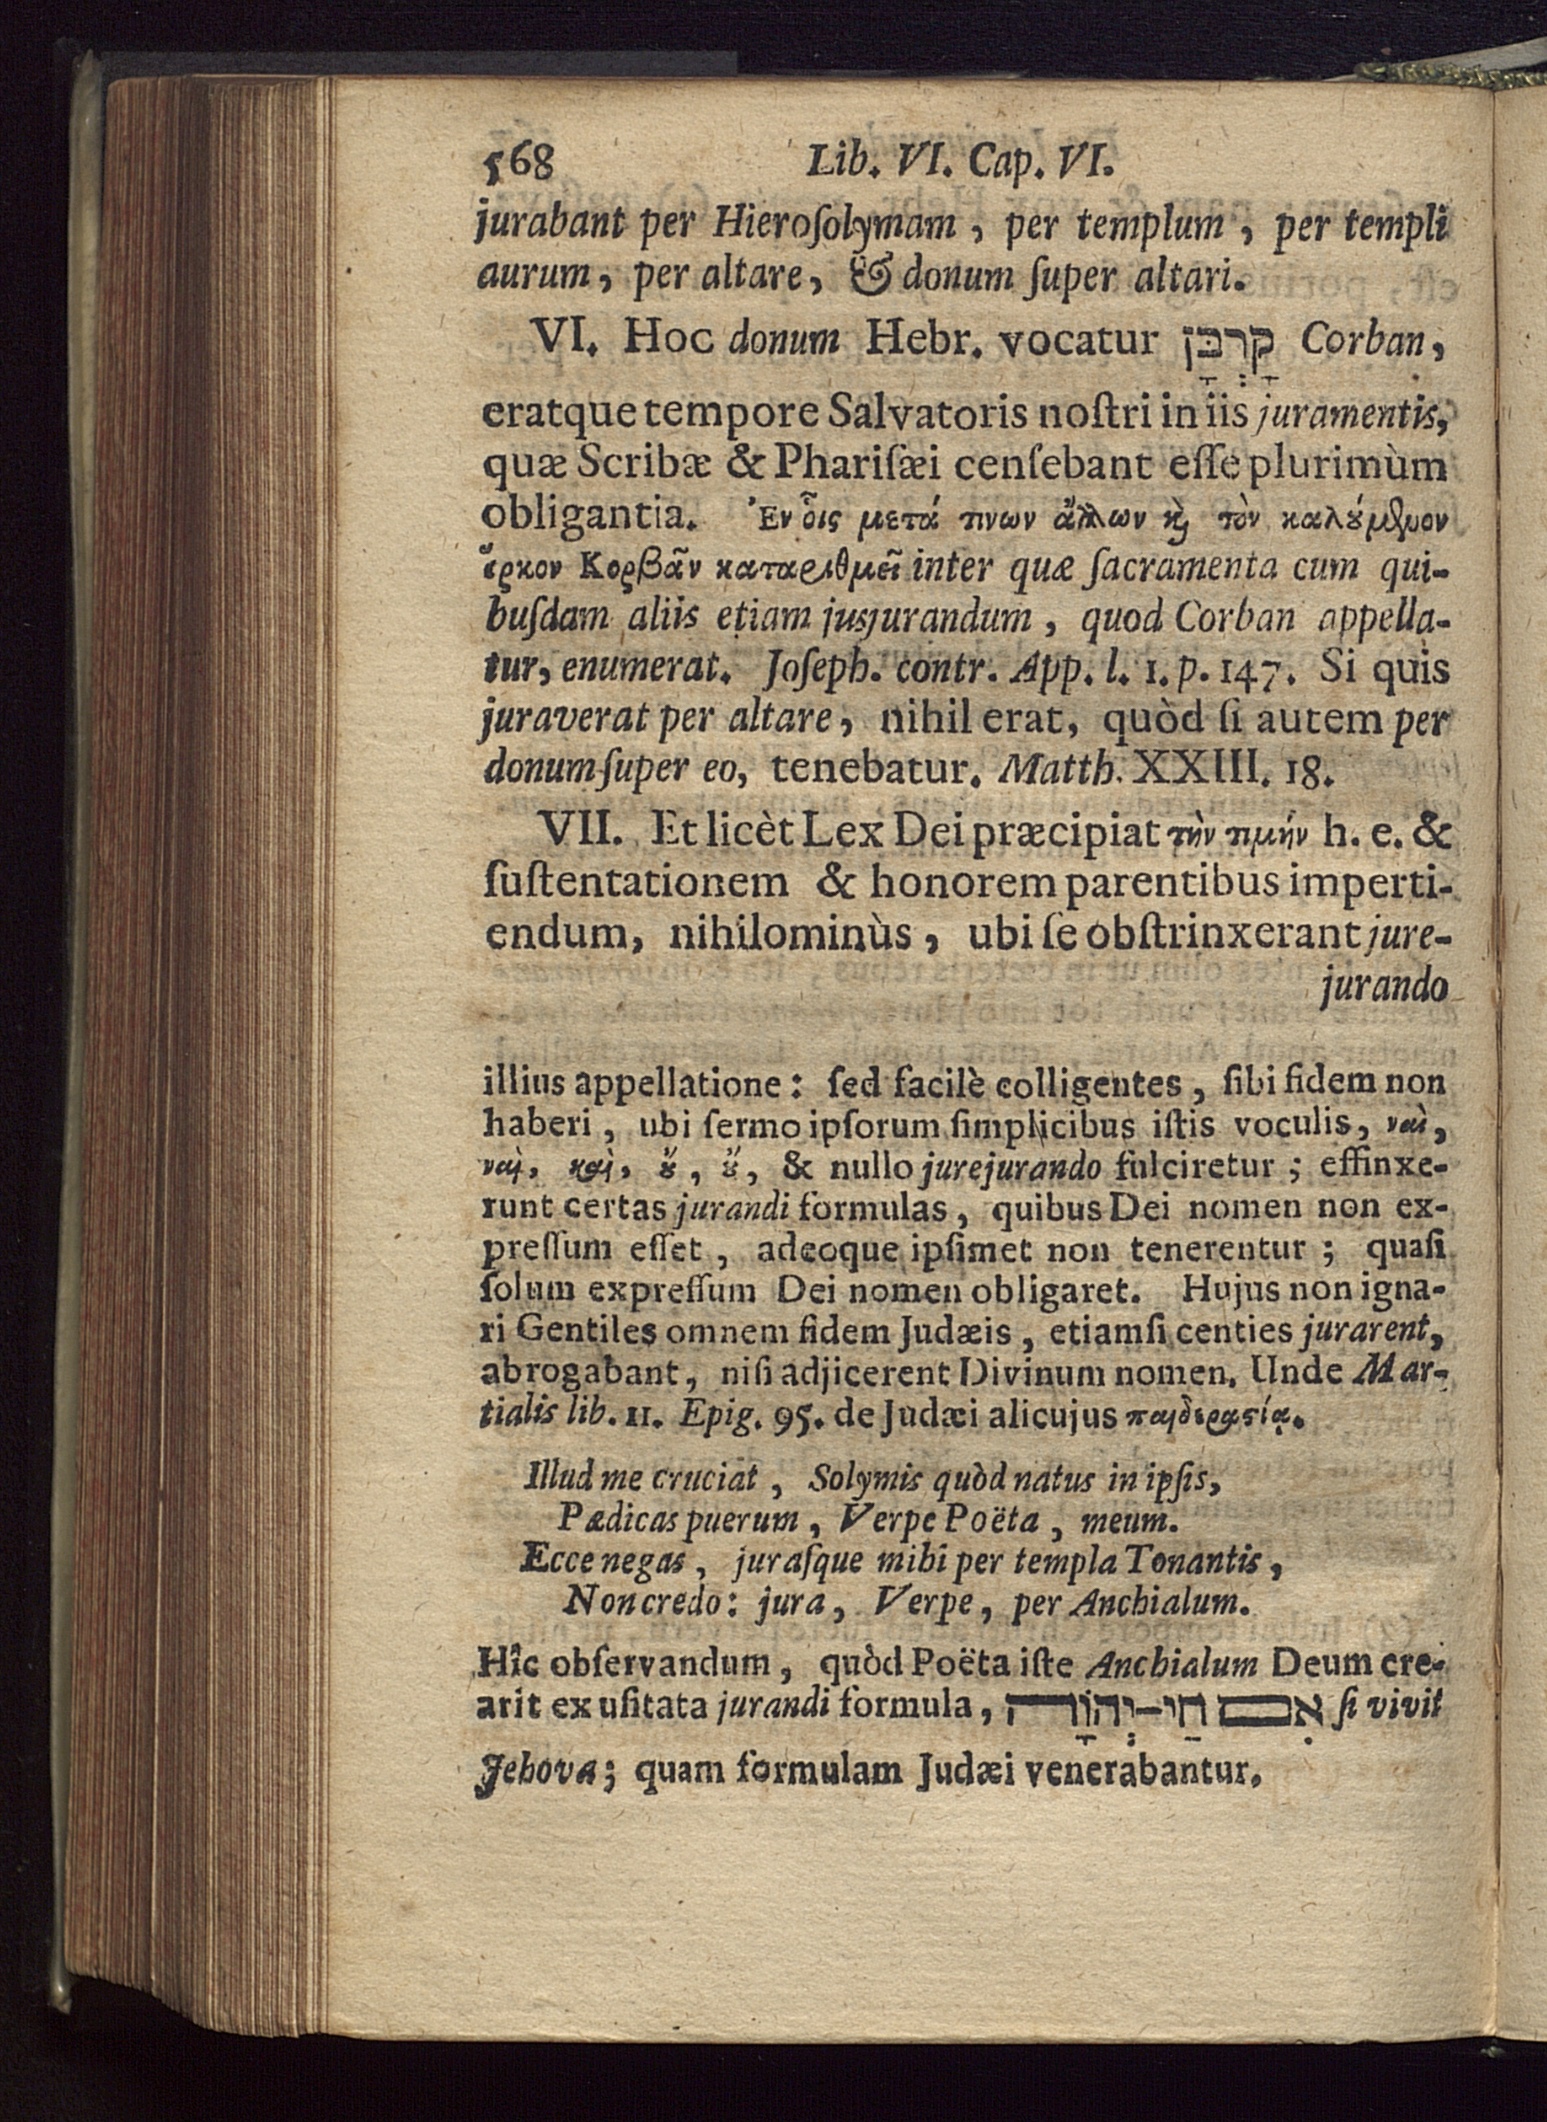 568 Lib. VI. Cap. VI.
jurabant per Hieroſolymam, per templum, per templi
aurum, per altare, & donum ſuper altari.
VI. Hoc donum Hebr. vocatur קָרְבָּן Corban,
eratque tempore Salvatoris noſtri in iis juramentis,
quæ Scribæ & Phariſæi cenſebant eſſe plurimùm
obligantia. Ἐν οἷς μετά τινων ἄλλων καὶ τὸν καλούμενον
ὅρκον Κορβᾶν καταριθμεῖ inter quæ ſacramenta cum qui-
buſdam aliis etiam jusjurandum, quod Corban appella-
tur, enumerat. Joſeph. contr. App. l. 1. p. 147. Si quis
juraverat per altare, nihil erat, quòd ſi autem per
donum ſuper eo, tenebatur. Matth. XXIII. 18.
VII. Et licèt Lex Dei præcipiat τὴν τιμήν h. e. &
ſuſtentationem & honorem parentibus imperti-
endum, nihilominùs, ubi ſe obſtrinxerant jure-
jurando
illius appellatione: ſed facilè colligentes, ſibi fidem non
haberi, ubi ſermo ipſorum ſimplicibus iſtis voculis, ναὶ,
ναὶ, καὶ, οὔ, οὔ, & nullo jurejurando fulciretur; effinxe-
runt certas jurandi formulas, quibus Dei nomen non ex-
preſſum eſſet, adeoque ipſimet non tenerentur; quaſi
ſolum expreſſum Dei nomen obligaret. Hujus non igna-
ri Gentiles omnem fidem Judæis, etiamſi centies jurarent,
abrogabant, niſi adjicerent Divinum nomen. Unde Mar-
tialis lib. 11. Epig. 95. de Judæi alicujus παιδεραστίᾳ.
Illud me cruciat, Solymis quòd natus in ipſis,
Pædicas puerum, Verpe Poëta, meum.
Ecce negas, juraſque mihi per templa Tonantis,
Non credo: jura, Verpe, per Anchialum.
Hîc obſervandum, quòd Poëta iſte Anchialum Deum cre-
arit ex uſitata jurandi formula, אִם חַי־יְהוָֹה ſi vivit
Jehova; quam formulam Judæi venerabantur.